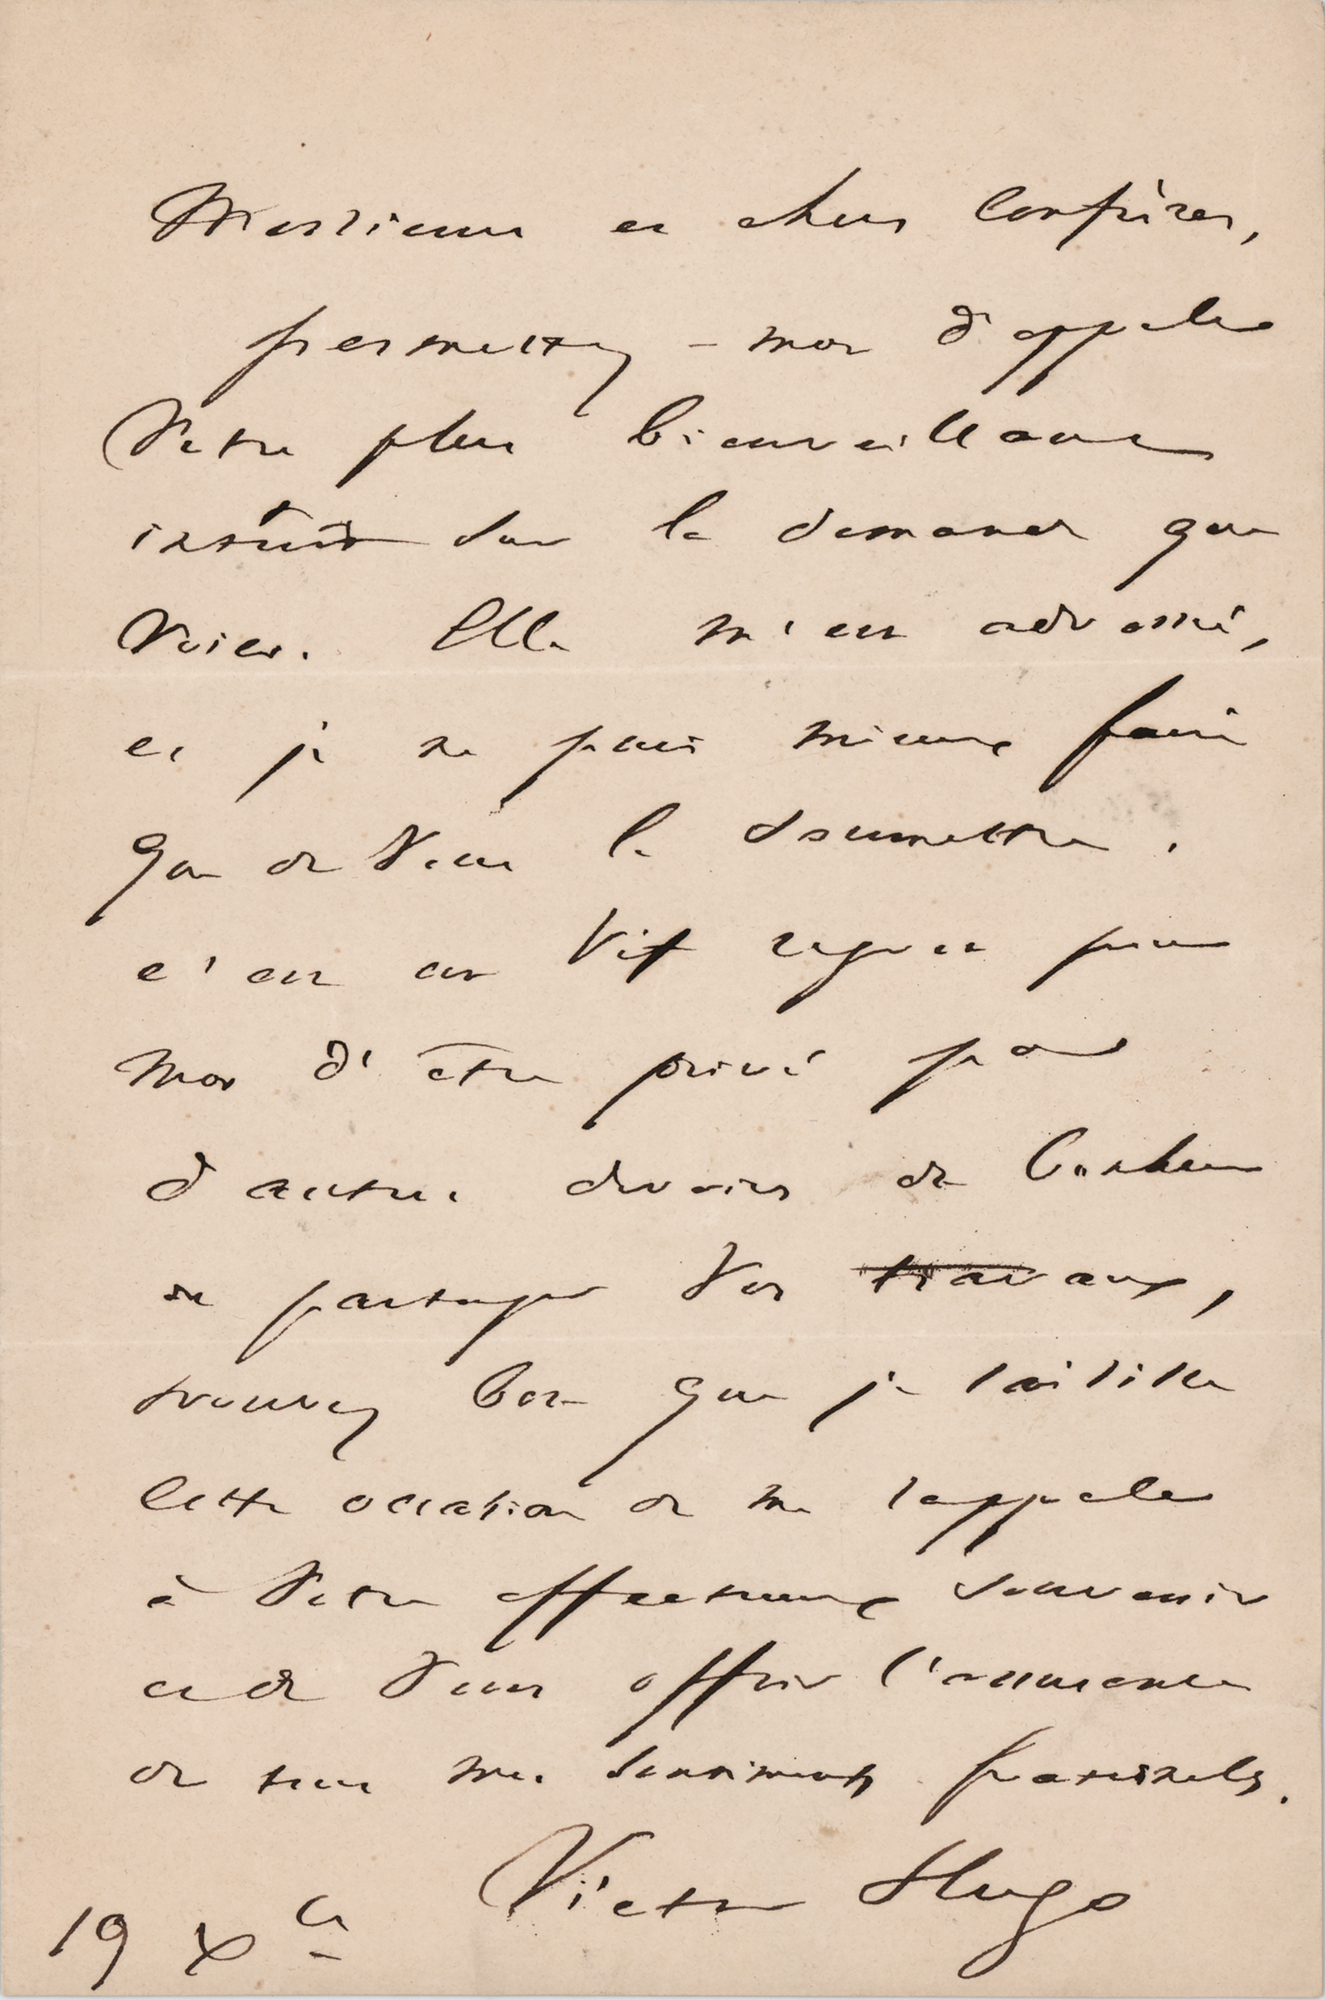 Messieurs et chers confrères,
permettez-moi d'appeler
Votre plus bienveillant
intérêt sur la demande que
Voici. Elle m'est adressée,
et je ne puis mieux faire
que de Vous la soumettre.
c'est un Vif regret pour
moi d'être privé par
d'autres devoirs du bonheur
de partager Vos travaux,
trouvez bon que je saisisse
cette occasion de me rappeler
à Votre affectueux souvenir
et de Vous offrir l'assurance
de tous mes sentiments fraternels.
Victor Hugo
19 Xbre